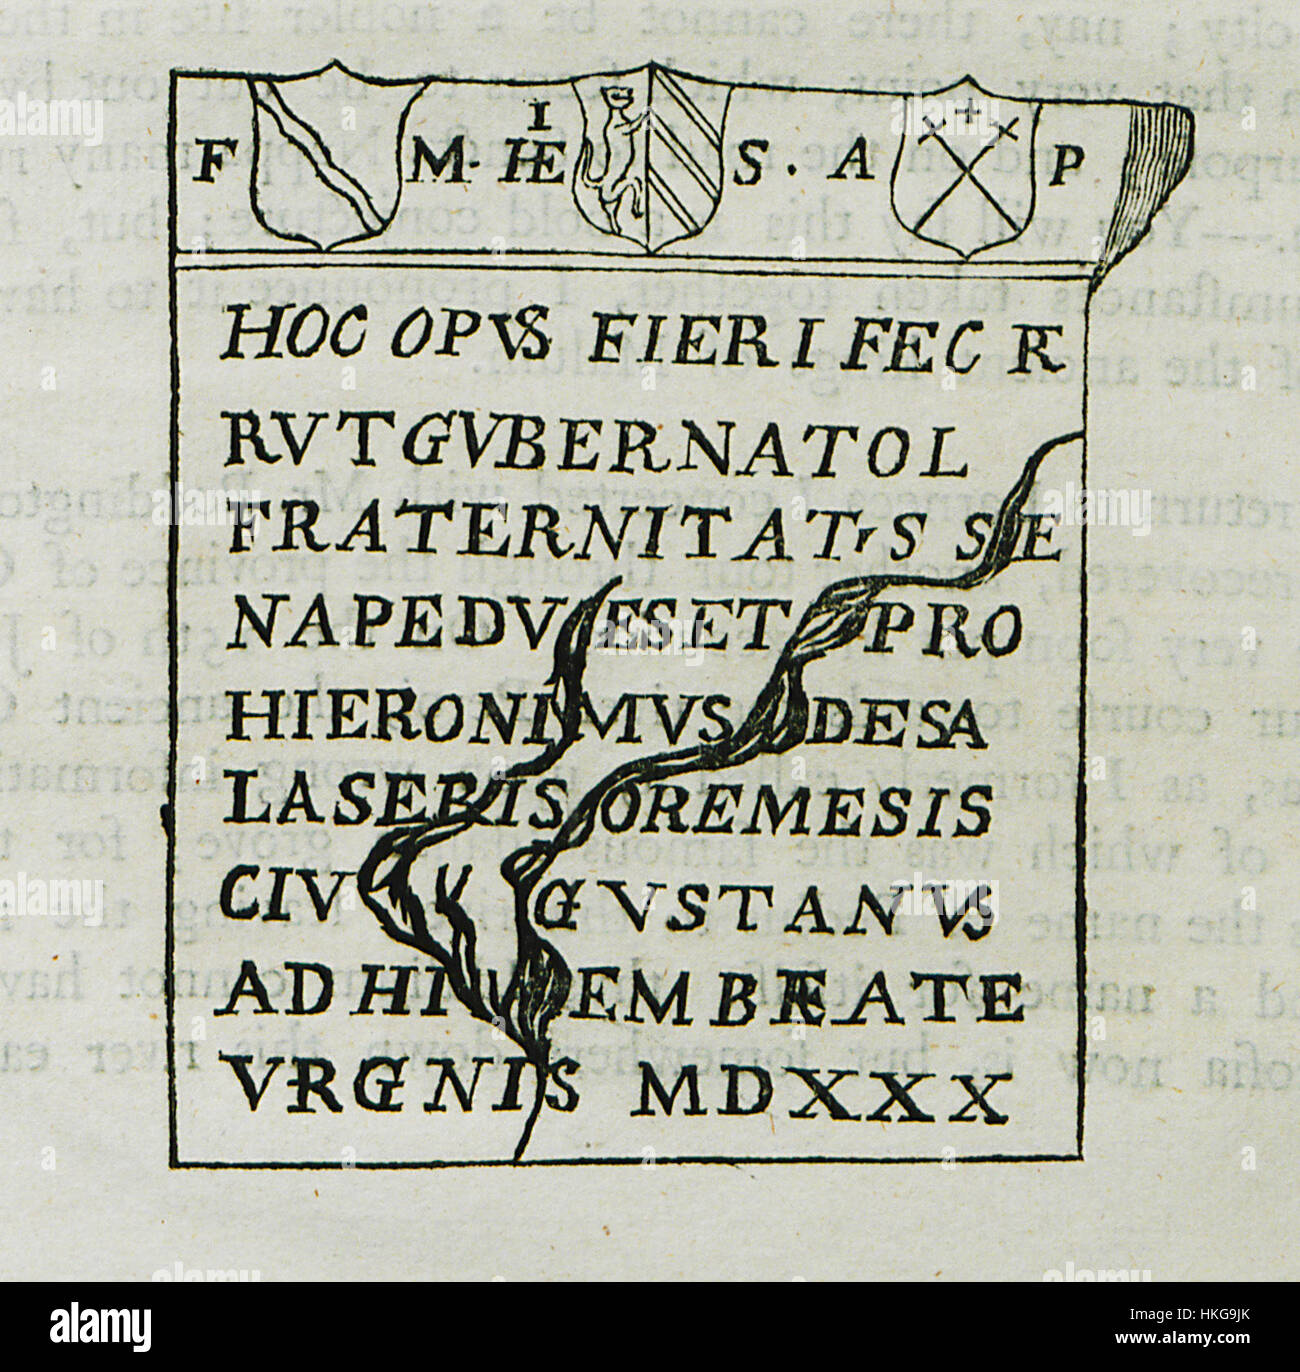 F M. HE I S. A P
HOC OPVS FIERI FECR RE
RVT GVBERNATOL
FRATERNITATIS SE
NAPEDVESET PRO
HIERONIMVS DESA
LASERIS OREMESIS
CIV GVSTANVS
ADHI EMBREATE
VRGNIS MDXXX
alamy
Image ID: HKG9JK
www.alamy.com